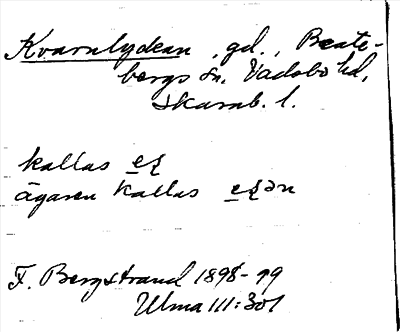 Kvarnlydean, gd., Beate-
bergs sn, Vadsbo hd,
Skarab. l.
kallas
ägaren kallas
F. Bergstrand 1898-99
Ulma 111:301